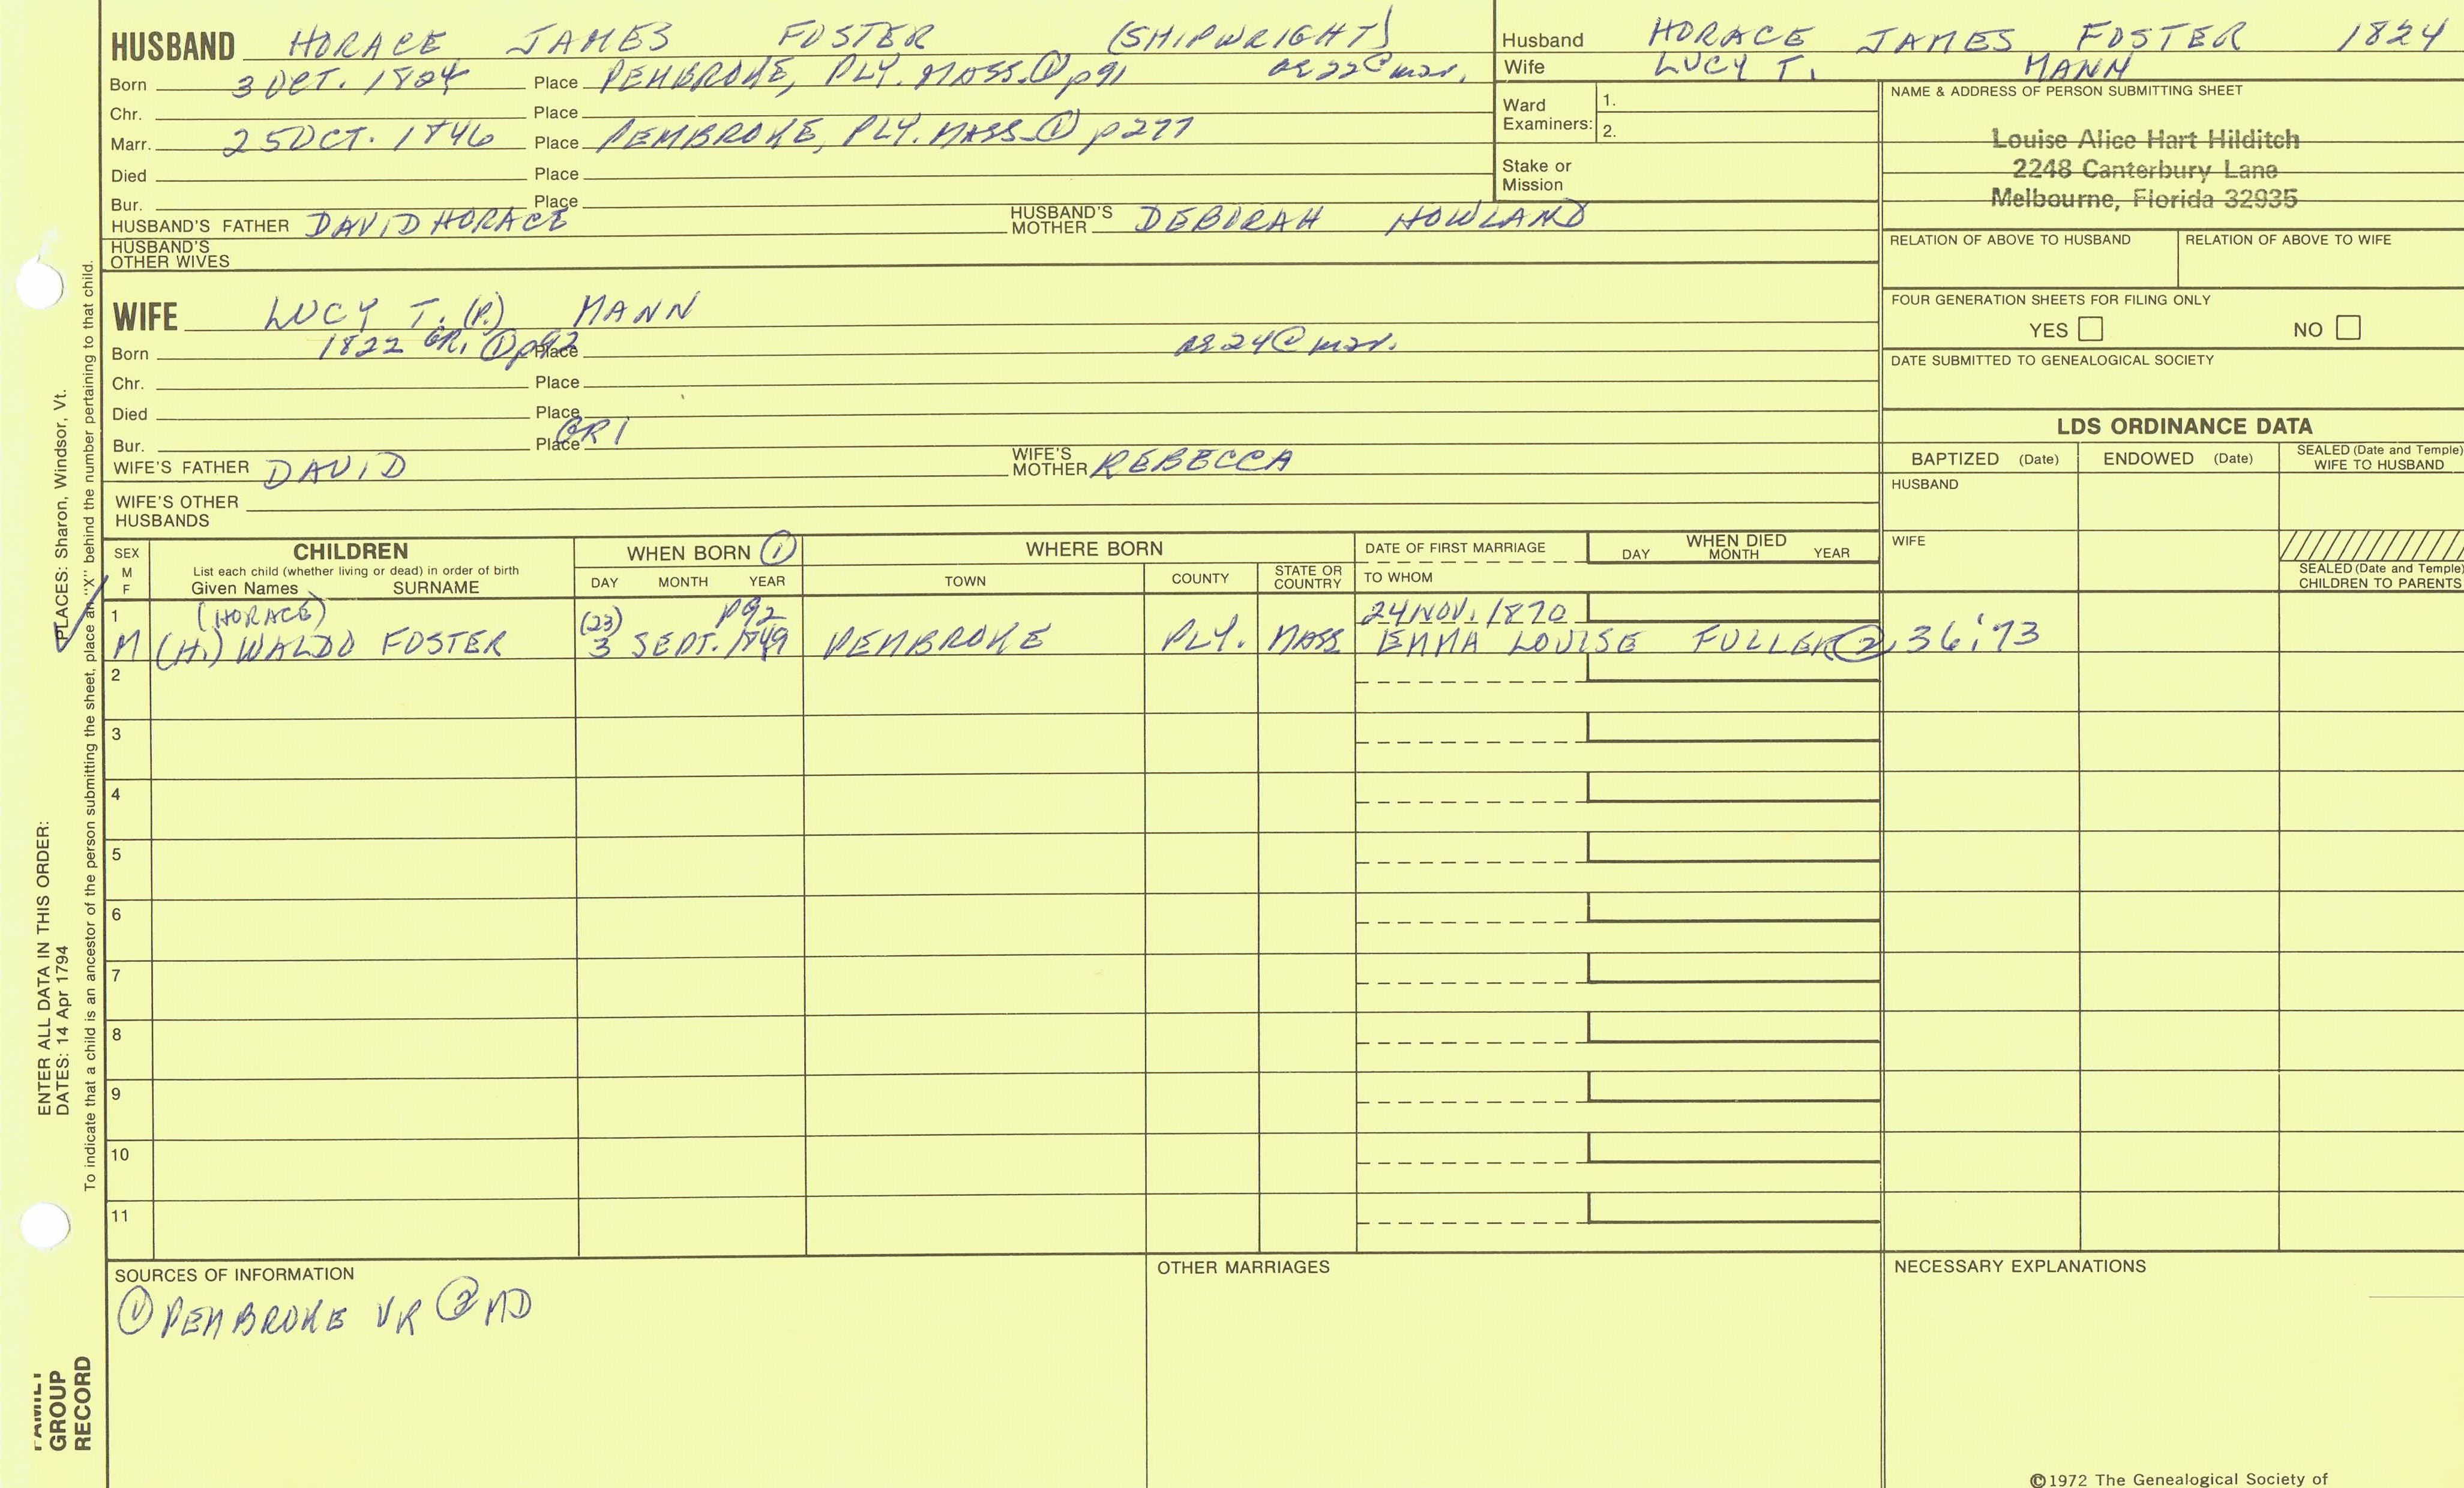 HUSBAND HORACE JAMES FOSTER (SHIPWRIGHT)
Born 3 OCT. 1824 Place PEMBROKE, PLY. MASS. ① p91 ae 22 @ mar.
Chr. Place
Marr. 25 OCT. 1846 Place PEMBROKE, PLY. MASS. ① p277
Died Place
Bur. Place
HUSBAND'S FATHER DAVID HORACE HUSBAND'S MOTHER DEBORAH HOWLAND
HUSBAND'S
OTHER WIVES
Husband HORACE JAMES FOSTER 1824
Wife LUCY T. MANN
Ward
Examiners: 1.
2.
Stake or
Mission
NAME & ADDRESS OF PERSON SUBMITTING SHEET
Louise Alice Hart Hilditch
2248 Canterbury Lane
Melbourne, Florida 32935
RELATION OF ABOVE TO HUSBAND RELATION OF ABOVE TO WIFE
FOUR GENERATION SHEETS FOR FILING ONLY
YES NO
DATE SUBMITTED TO GENEALOGICAL SOCIETY
WIFE LUCY T. (P.) MANN
Born 1822 GR1 ① p92 Place ae 24 @ mar.
Chr. Place
Died Place
Bur. Place GR1
WIFE'S FATHER DAVID WIFE'S MOTHER REBECCA
WIFE'S OTHER
HUSBANDS
LDS ORDINANCE DATA
BAPTIZED (Date) ENDOWED (Date) SEALED (Date and Temple) WIFE TO HUSBAND
HUSBAND
WIFE
SEALED (Date and Temple)
CHILDREN TO PARENTS
SEX
M
F
CHILDREN
List each child (whether living or dead) in order of birth
Given Names SURNAME
WHEN BORN ①
DAY MONTH YEAR
WHERE BORN
TOWN COUNTY STATE OR COUNTRY
DATE OF FIRST MARRIAGE
TO WHOM
WHEN DIED
DAY MONTH YEAR
1 (HORACE) (23) p92 24 NOV. 1870
M (H.) WALDO FOSTER 3 SEPT. 1849 PEMBROKE PLY. MASS EMMA LOUISE FULLER ② 36:73
2
3
4
5
6
7
8
9
10
11
SOURCES OF INFORMATION
① PEMBROKE VR ② MD
OTHER MARRIAGES
NECESSARY EXPLANATIONS
©1972 The Genealogical Society of
PLACES: Sharon, Windsor, Vt.
To indicate that a child is an ancestor of the person submitting the sheet, place an "X" behind the number pertaining to that child.
ENTER ALL DATA IN THIS ORDER:
DATES: 14 Apr 1794
FAMILY
GROUP
RECORD